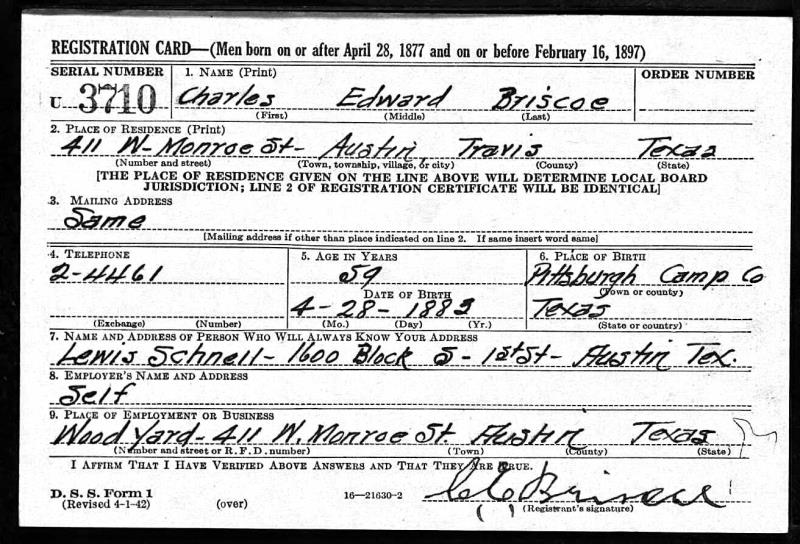 REGISTRATION CARD—(Men born on or after April 28, 1877 and on or before February 16, 1897)
SERIAL NUMBER
1. NAME (Print)
ORDER NUMBER
U 3710
Charles Edward Briscoe
(First) (Middle) (Last)
2. PLACE OF RESIDENCE (Print)
411 W- Monroe St- Austin, Travis Texas
(Number and street) (Town, township, village, or city) (County) (State)
[THE PLACE OF RESIDENCE GIVEN ON THE LINE ABOVE WILL DETERMINE LOCAL BOARD
JURISDICTION; LINE 2 OF REGISTRATION CERTIFICATE WILL BE IDENTICAL]
3. MAILING ADDRESS
Same
[Mailing address if other than place indicated on line 2. If same insert word same]
4. TELEPHONE
5. AGE IN YEARS
6. PLACE OF BIRTH
2-4461
59
Pittsburgh Camp Co
(Town or county)
DATE OF BIRTH
4-28-1883
Texas
(Exchange) (Number)
(Mo.) (Day) (Yr.)
(State or country)
7. NAME AND ADDRESS OF PERSON WHO WILL ALWAYS KNOW YOUR ADDRESS
Lewis Schnell- 1600 Block S- 1st St- Austin Tex.
8. EMPLOYER'S NAME AND ADDRESS
Self
9. PLACE OF EMPLOYMENT OR BUSINESS
Wood Yard- 411 W. Monroe St. Austin Texas
(Number and street or R. F. D. number) (Town) (County) (State)
I AFFIRM THAT I HAVE VERIFIED ABOVE ANSWERS AND THAT THEY ARE TRUE.
D. S. S. Form 1
(Revised 4-1-42)
(over)
16—21630-2
C E Briscoe
(Registrant's signature)